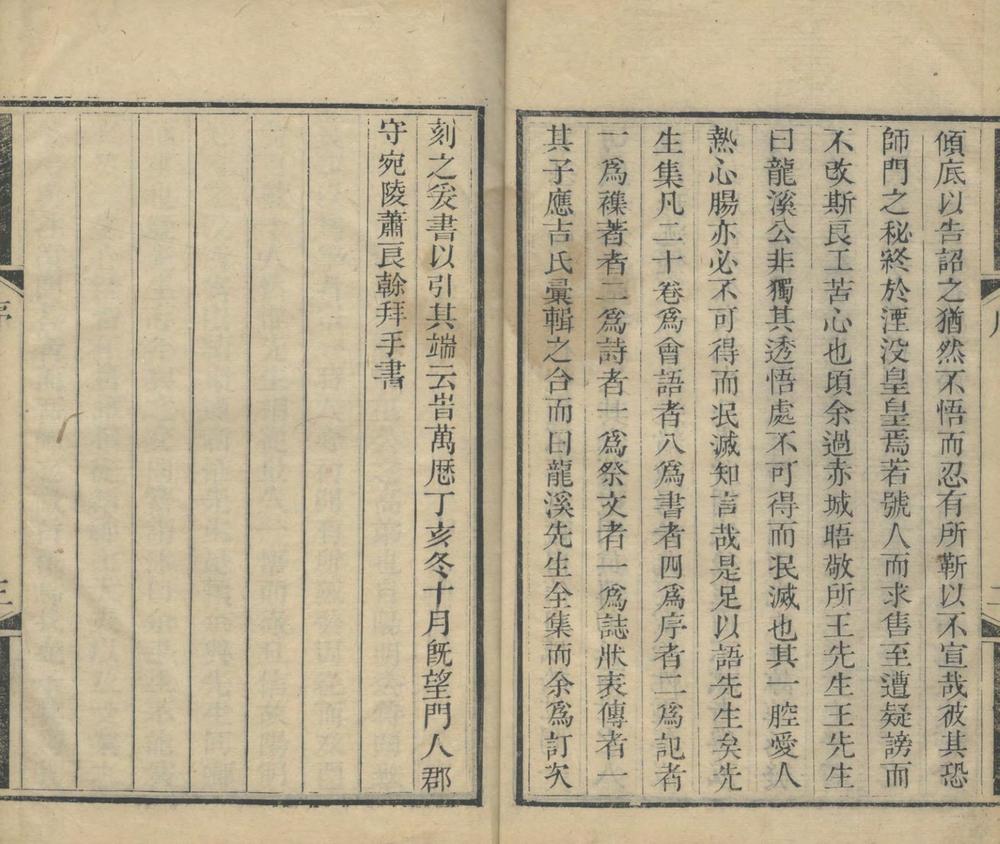 傾底以告詔之猶然不悟而忍有所靳以不宣哉彼其恐
師門之秘終於湮没皇皇焉若號人而求售至遭疑謗而
不攺斯良工苦心也頃余過赤城晤敬所王先生王先生
曰龍溪公非獨其透悟處不可得而泯滅也其一腔愛人
熱心腸亦必不可得而泯滅知言哉是足以語先生矣先
生集凡二十卷爲會語者八爲書者四爲序者二爲記者
一爲襍著者二爲詩者一爲祭文者一爲誌狀表傳者一
其子應吉氏彚輯之台而曰龍溪先生全集而余爲訂次
刻之爰書以引其端云旹萬厯丁亥冬十月旣望門人郡
守宛陵蕭良榦拜手書
序
三